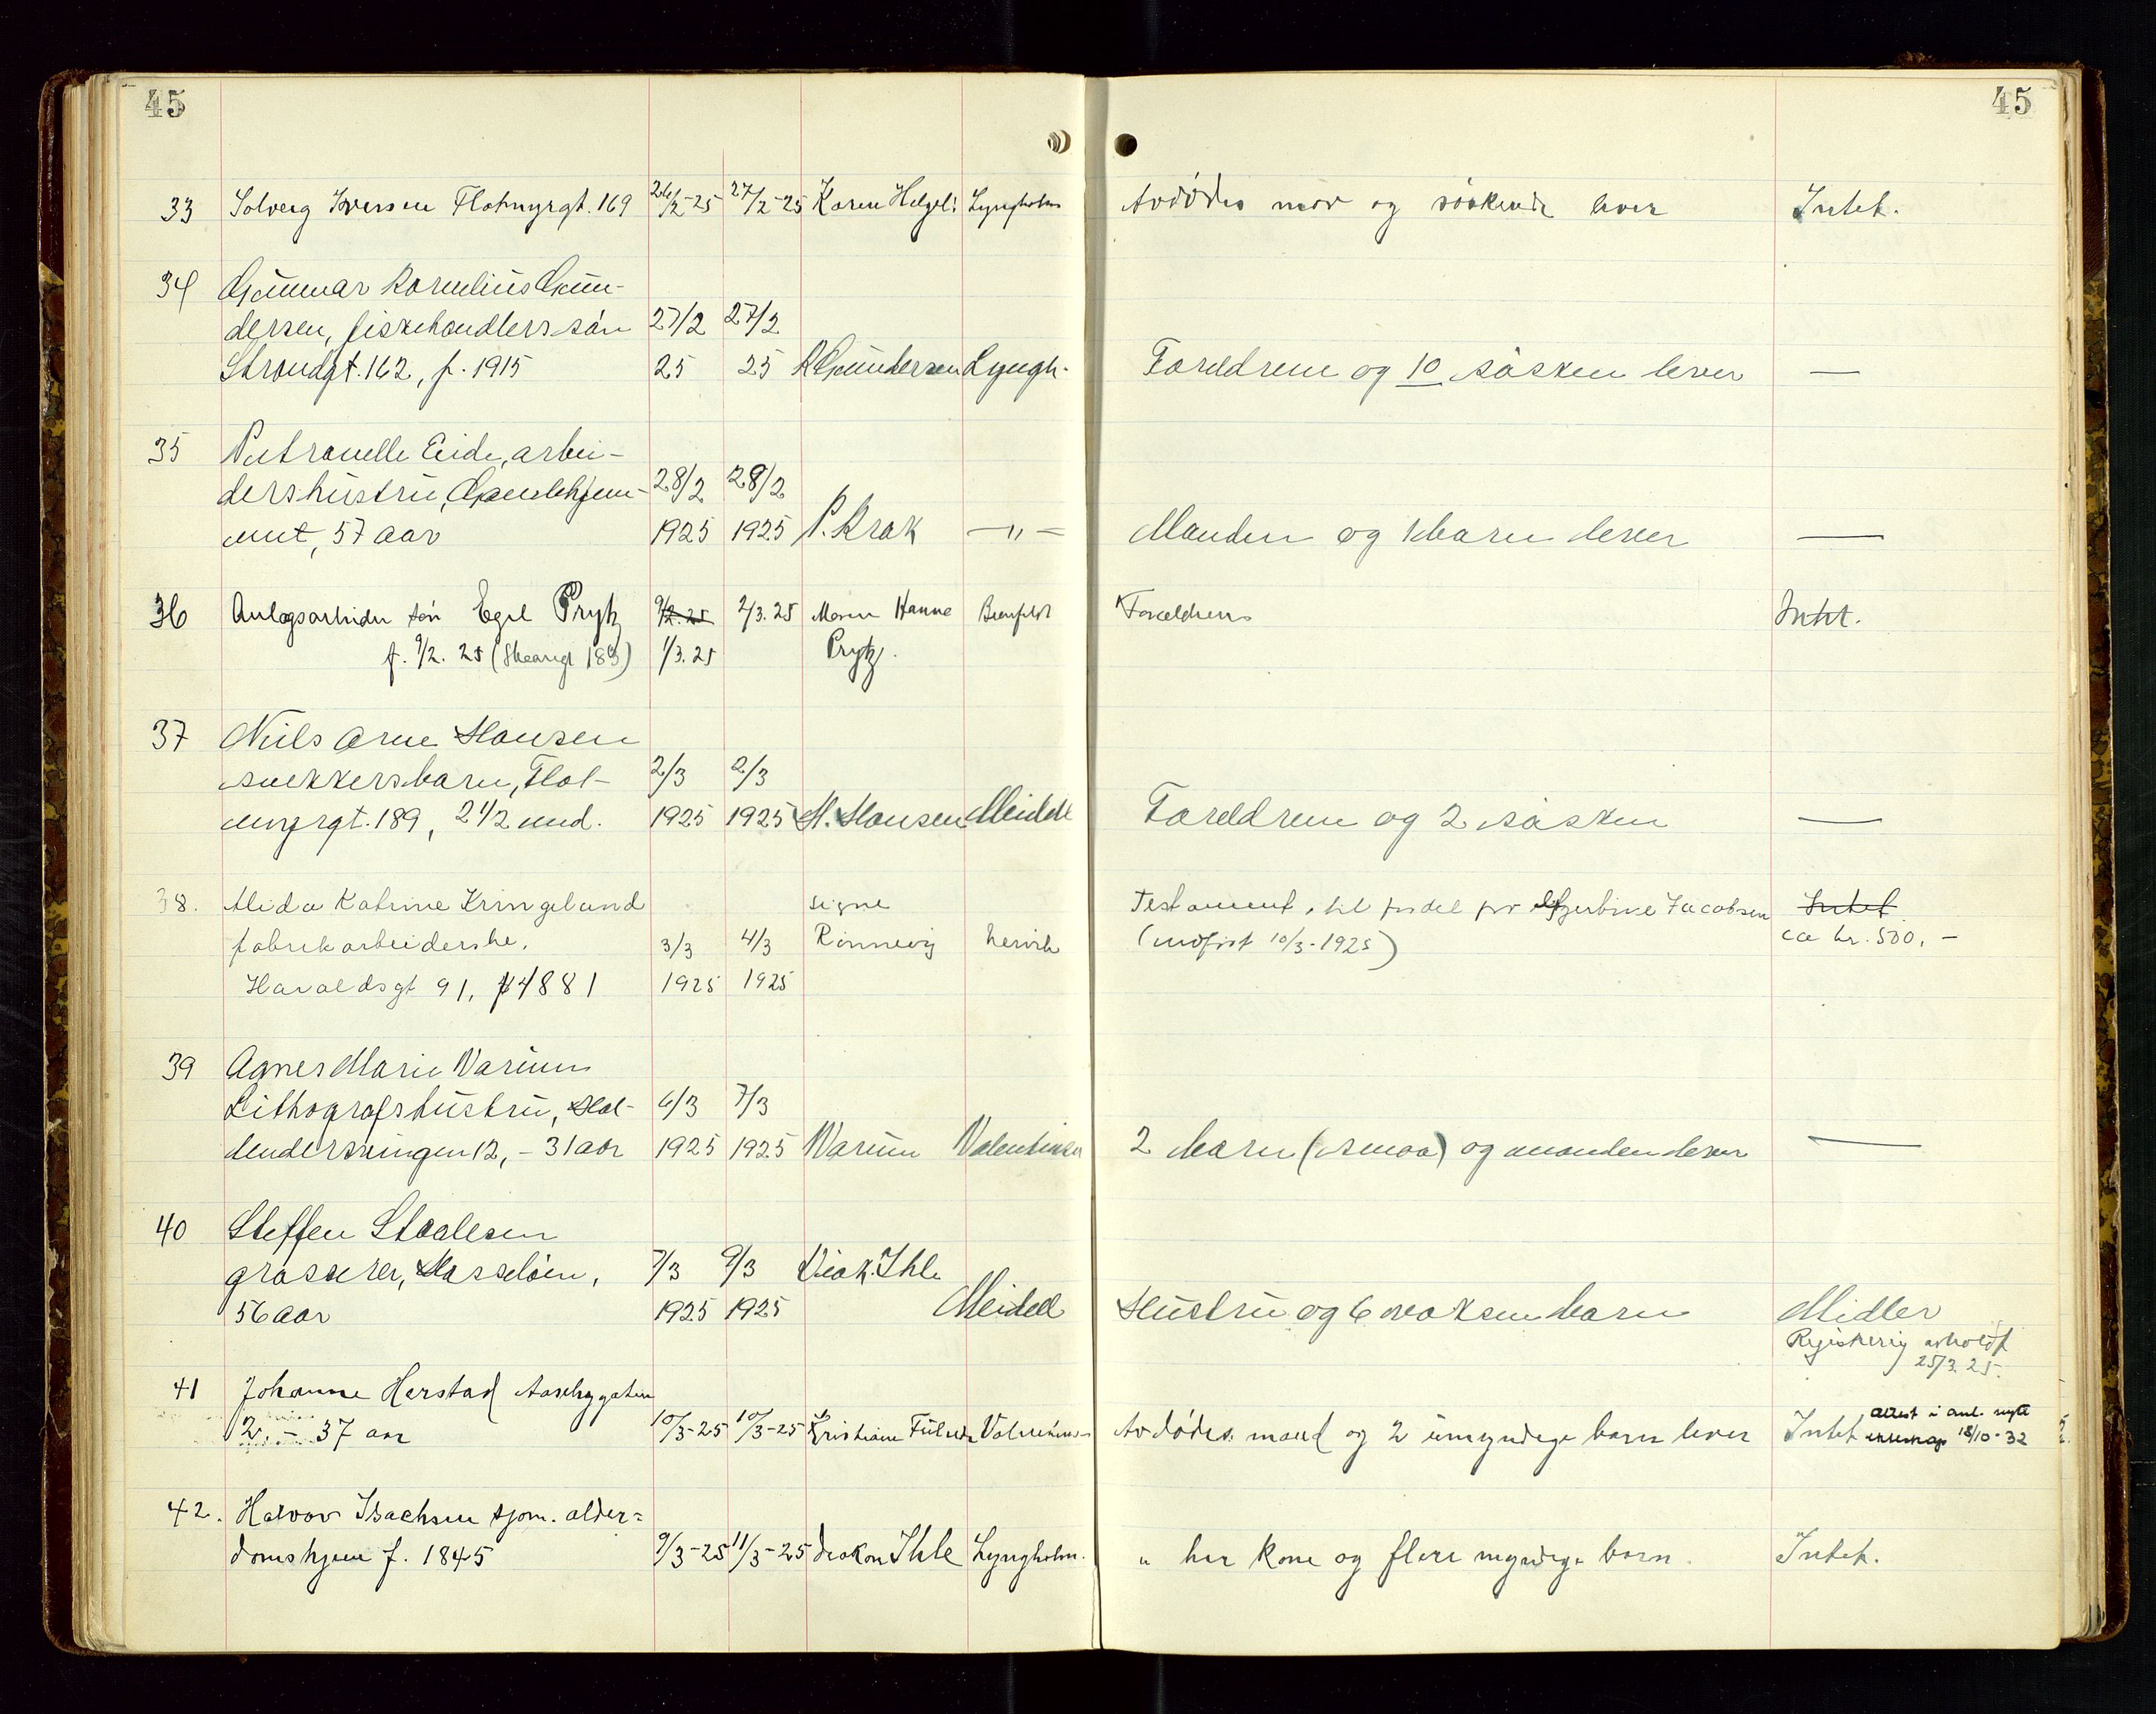 45
45
33 Solveig Iversen Flotmyrgt. 169 26/2-25 27/2-25 Karen Helgel: Lyngholm Avdødes mor og søskende lever Intet.
34 Gunnar Kornelius Gun-
dersen, fiskehandlers søn 27/2 27/2
Strandgt. 162, f. 1915 25 25 K Gundersen Lyngh. Foreldrene og 10 søsken lever —
35 Petronelle Eide, arbei-
dershustru, Gamlehjem- 28/2 28/2
met, 57 aar 1925 1925 P. Krak —"— Manden og 1 barn lever —
36 Anlægsarbeider søn Egil Prytz 9/2.25 2/3.25 Moren Hanne Forældrene Intet.
f. 9/2. 25 (Skaregt 183) 1/3.25 Prytz.
37 Niels Arne Hansen
snekkersbarn, Flot- 2/3 2/3
myrgt. 189, 2 1/2 mnd. 1925 1925 H. Hansen Meidell Foreldrene og 2 søsken —
38. Alida Katrine Kringeland signe Testament, til fordel for Jacobsen Intet
fabrikarbeiderske. 3/3 4/3 Rönnevig Lervik (innført 10/3-1925) ca kr. 500.-
Haraldsgt 91, f 1881 1925 1925
39 Agnes Marie Warum
Lithografshustru, Hol- 6/3 7/3
lendersvingen 12, - 31 aar 1925 1925 Warum Valentinsen 2 barn (smaa) og manden lever —
40 Steffen Staalesen
grosserer, Hasseløen, 7/3 9/3 Diak. Ihle
56 aar 1925 1925 Meidell Hustru og 6 voksen barn Midler
Registrering avholdt
25/3 25.
41 Johanne Herstad Aasebygaten
12. - 37 aar 10/3-25 10/3-25 Kristiane Valentinsen Avdødes mand og 2 umyndige barn lever Intet attest i anl. nytt
ekteskap 18/10-32
42. Halvor Isachsen sjøm. alder=
domshjem f. 1845 9/3-25 11/3-25 diakon Ihle Lyngholm. " har kone og flere myndige barn. Intet.